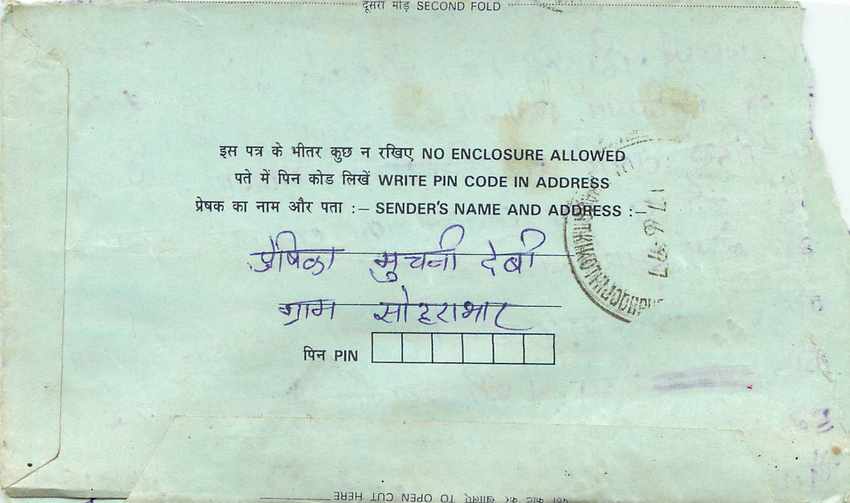 दूसरा मोड़ SECOND FOLD
इस पत्र के भीतर कुछ न रखिए NO ENCLOSURE ALLOWED
पते में पिन कोड लिखें WRITE PIN CODE IN ADDRESS
प्रेषक का नाम और पता :– SENDER'S NAME AND ADDRESS :–
प्रेषिका मुचनी देवी
ग्राम सोहराभार
पिन PIN
TO OPEN CUT HERE